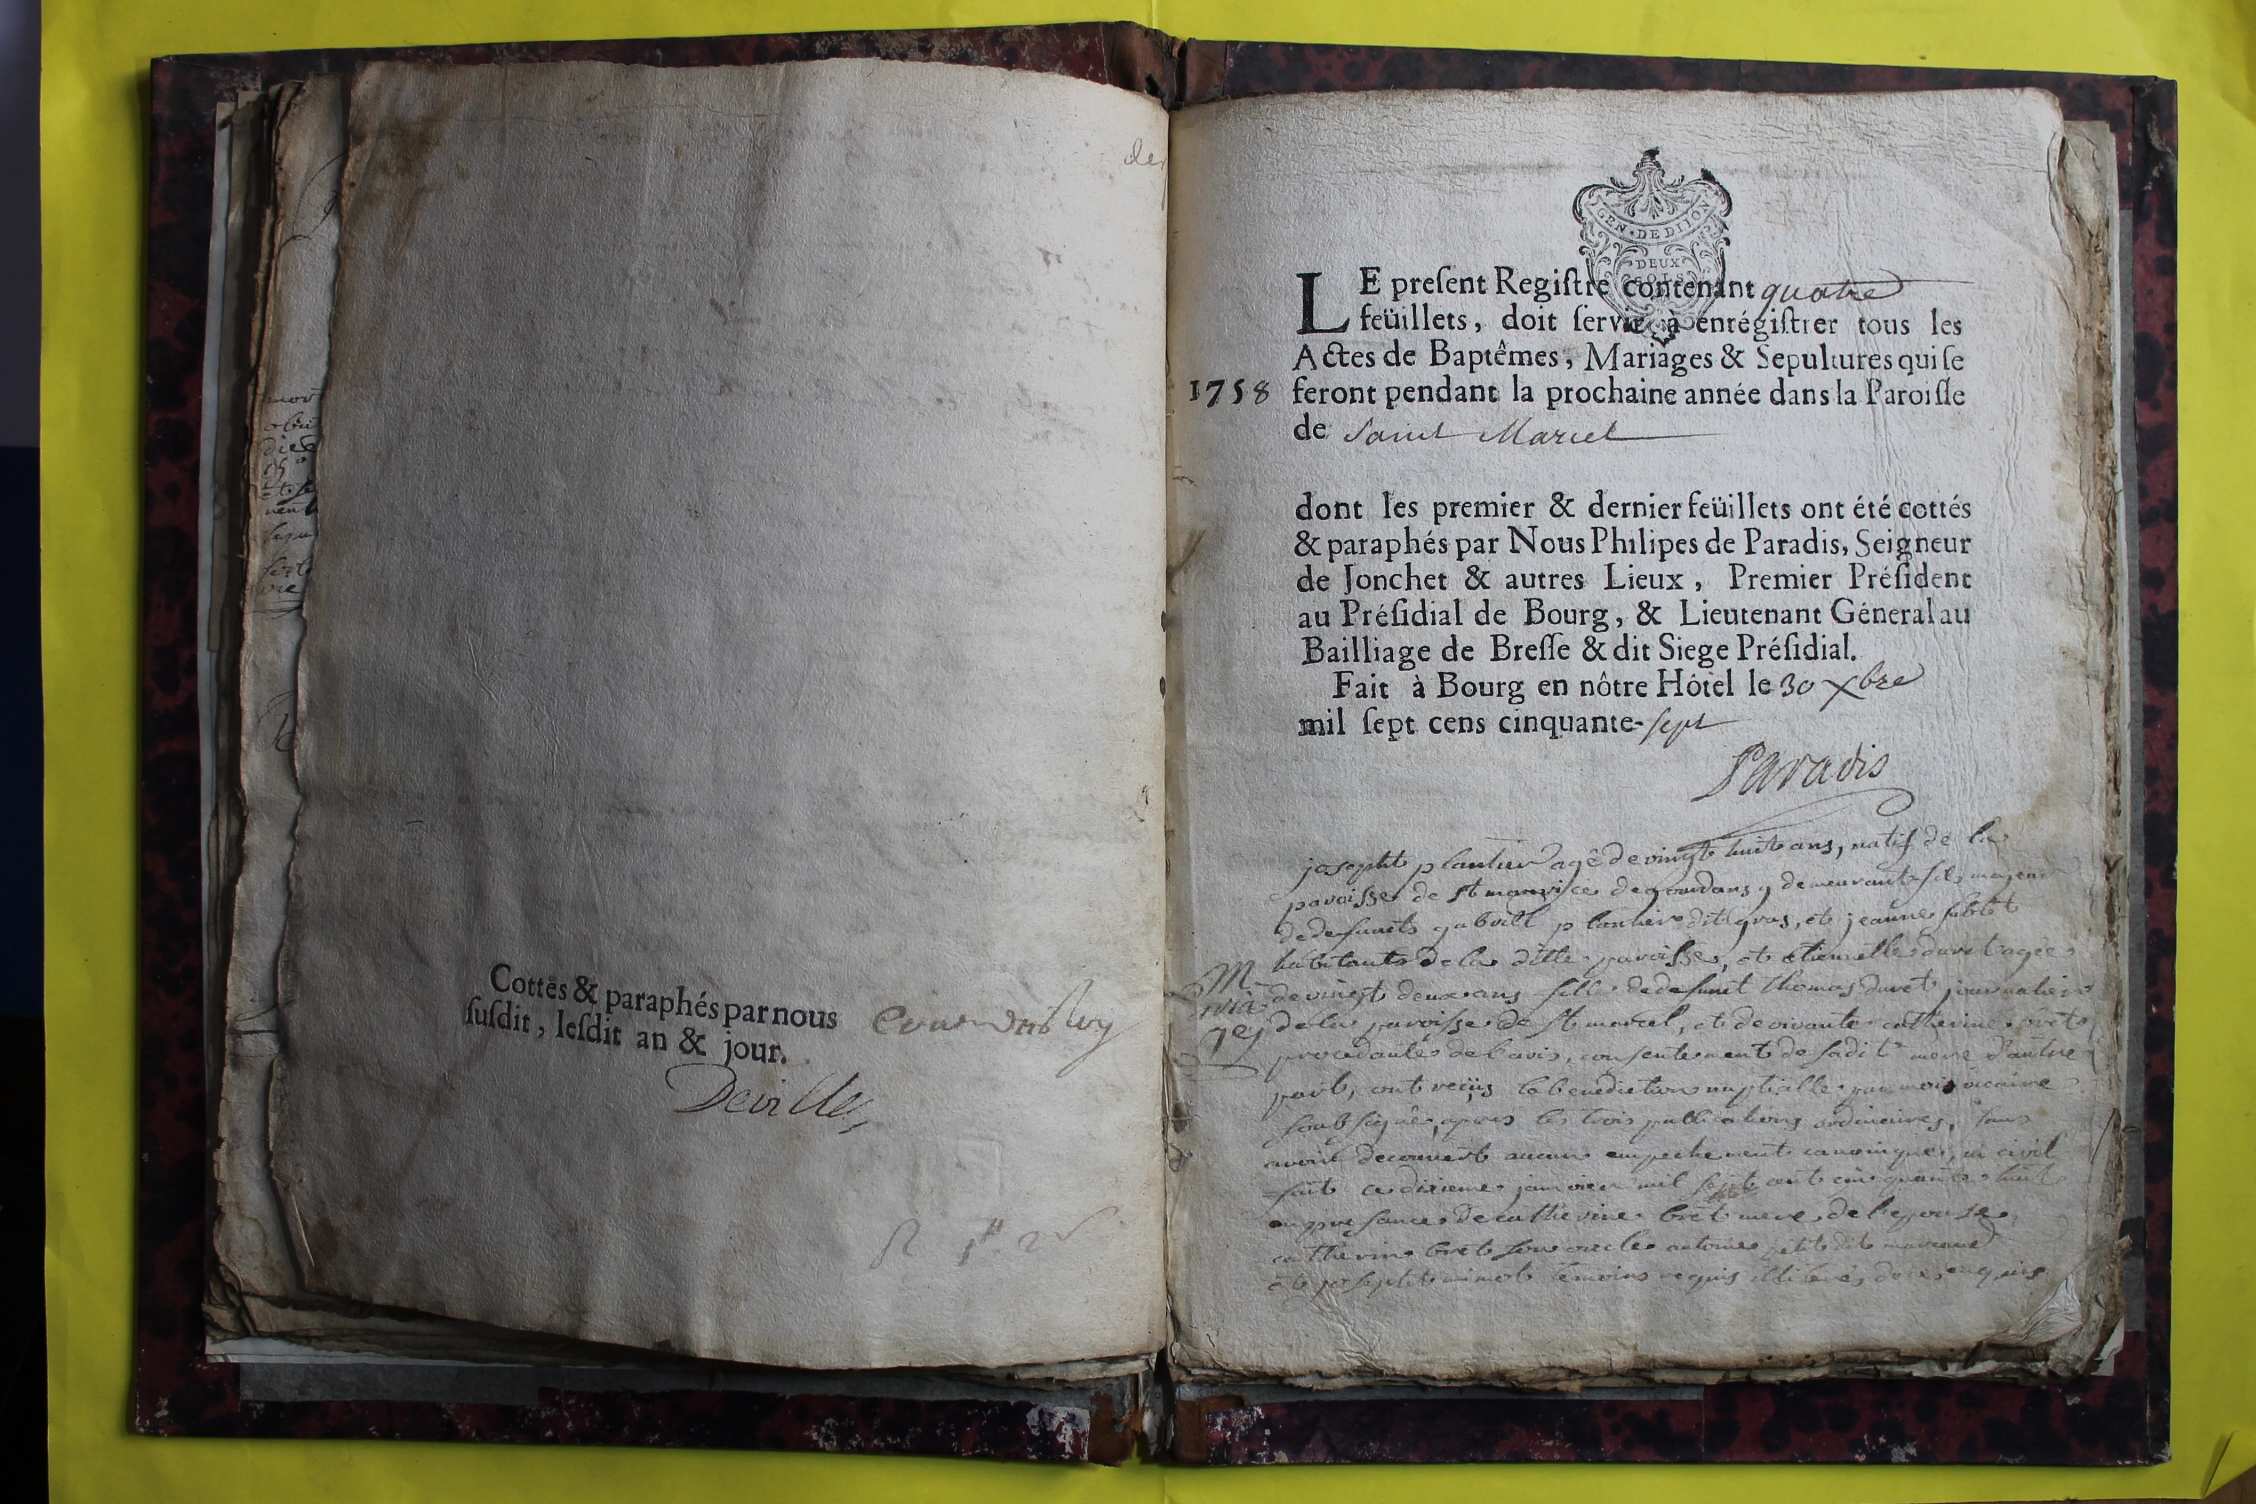 Cottés & paraphés par nous
ſuſdit, leſdit an & jour.
Deville
GEN • DE DIJON
DEUX
SOLS
LE preſent Regiſtre contenant quatre
feüillets, doit ſervir à enrégiſtrer tous les
Actes de Baptêmes, Mariages & Sepultures qui ſe
1758 feront pendant la prochaine année dans la Paroiſſe
de Saint Marcel
dont les premier & dernier feüillets ont été cottés
& paraphés par Nous Philipes de Paradis, Seigneur
de Jonchet & autres Lieux, Premier Préſident
au Préſidial de Bourg, & Lieutenant Géneral au
Bailliage de Breſſe & dit Siege Préſidial.
Fait à Bourg en nôtre Hôtel le 30 Xbre
mil ſept cens cinquante-sept
Paradis
josepht plantier agé de vingt huit ans, natif de la
paroisse de st maurice de gourdans y demeurant fils majeur
de defunts gabriel plantier dit gras, et jeanne
habitants de la ditte paroisse, et etiennette duret agée
Mariages
de vingt deux ans fille de defunt thomas duret journalier
de la paroisse de st marcel, et de vivante catherine bret
procedante de l'avis, consentement de sadite mere d'autre
part, ont reçüs la benediction nuptialle par moi vicaire
soubsigné, apres les trois publications ordinaires, sans
avoir decouvert aucun empechement canonique, ni civil
fait ce dixieme janvier mil sept cent cinquante huit
en presence de catherine bret mere de l'epouse,
bret son oncle antoine petit dit
et josepht temoins requis illiterés de ce enquis